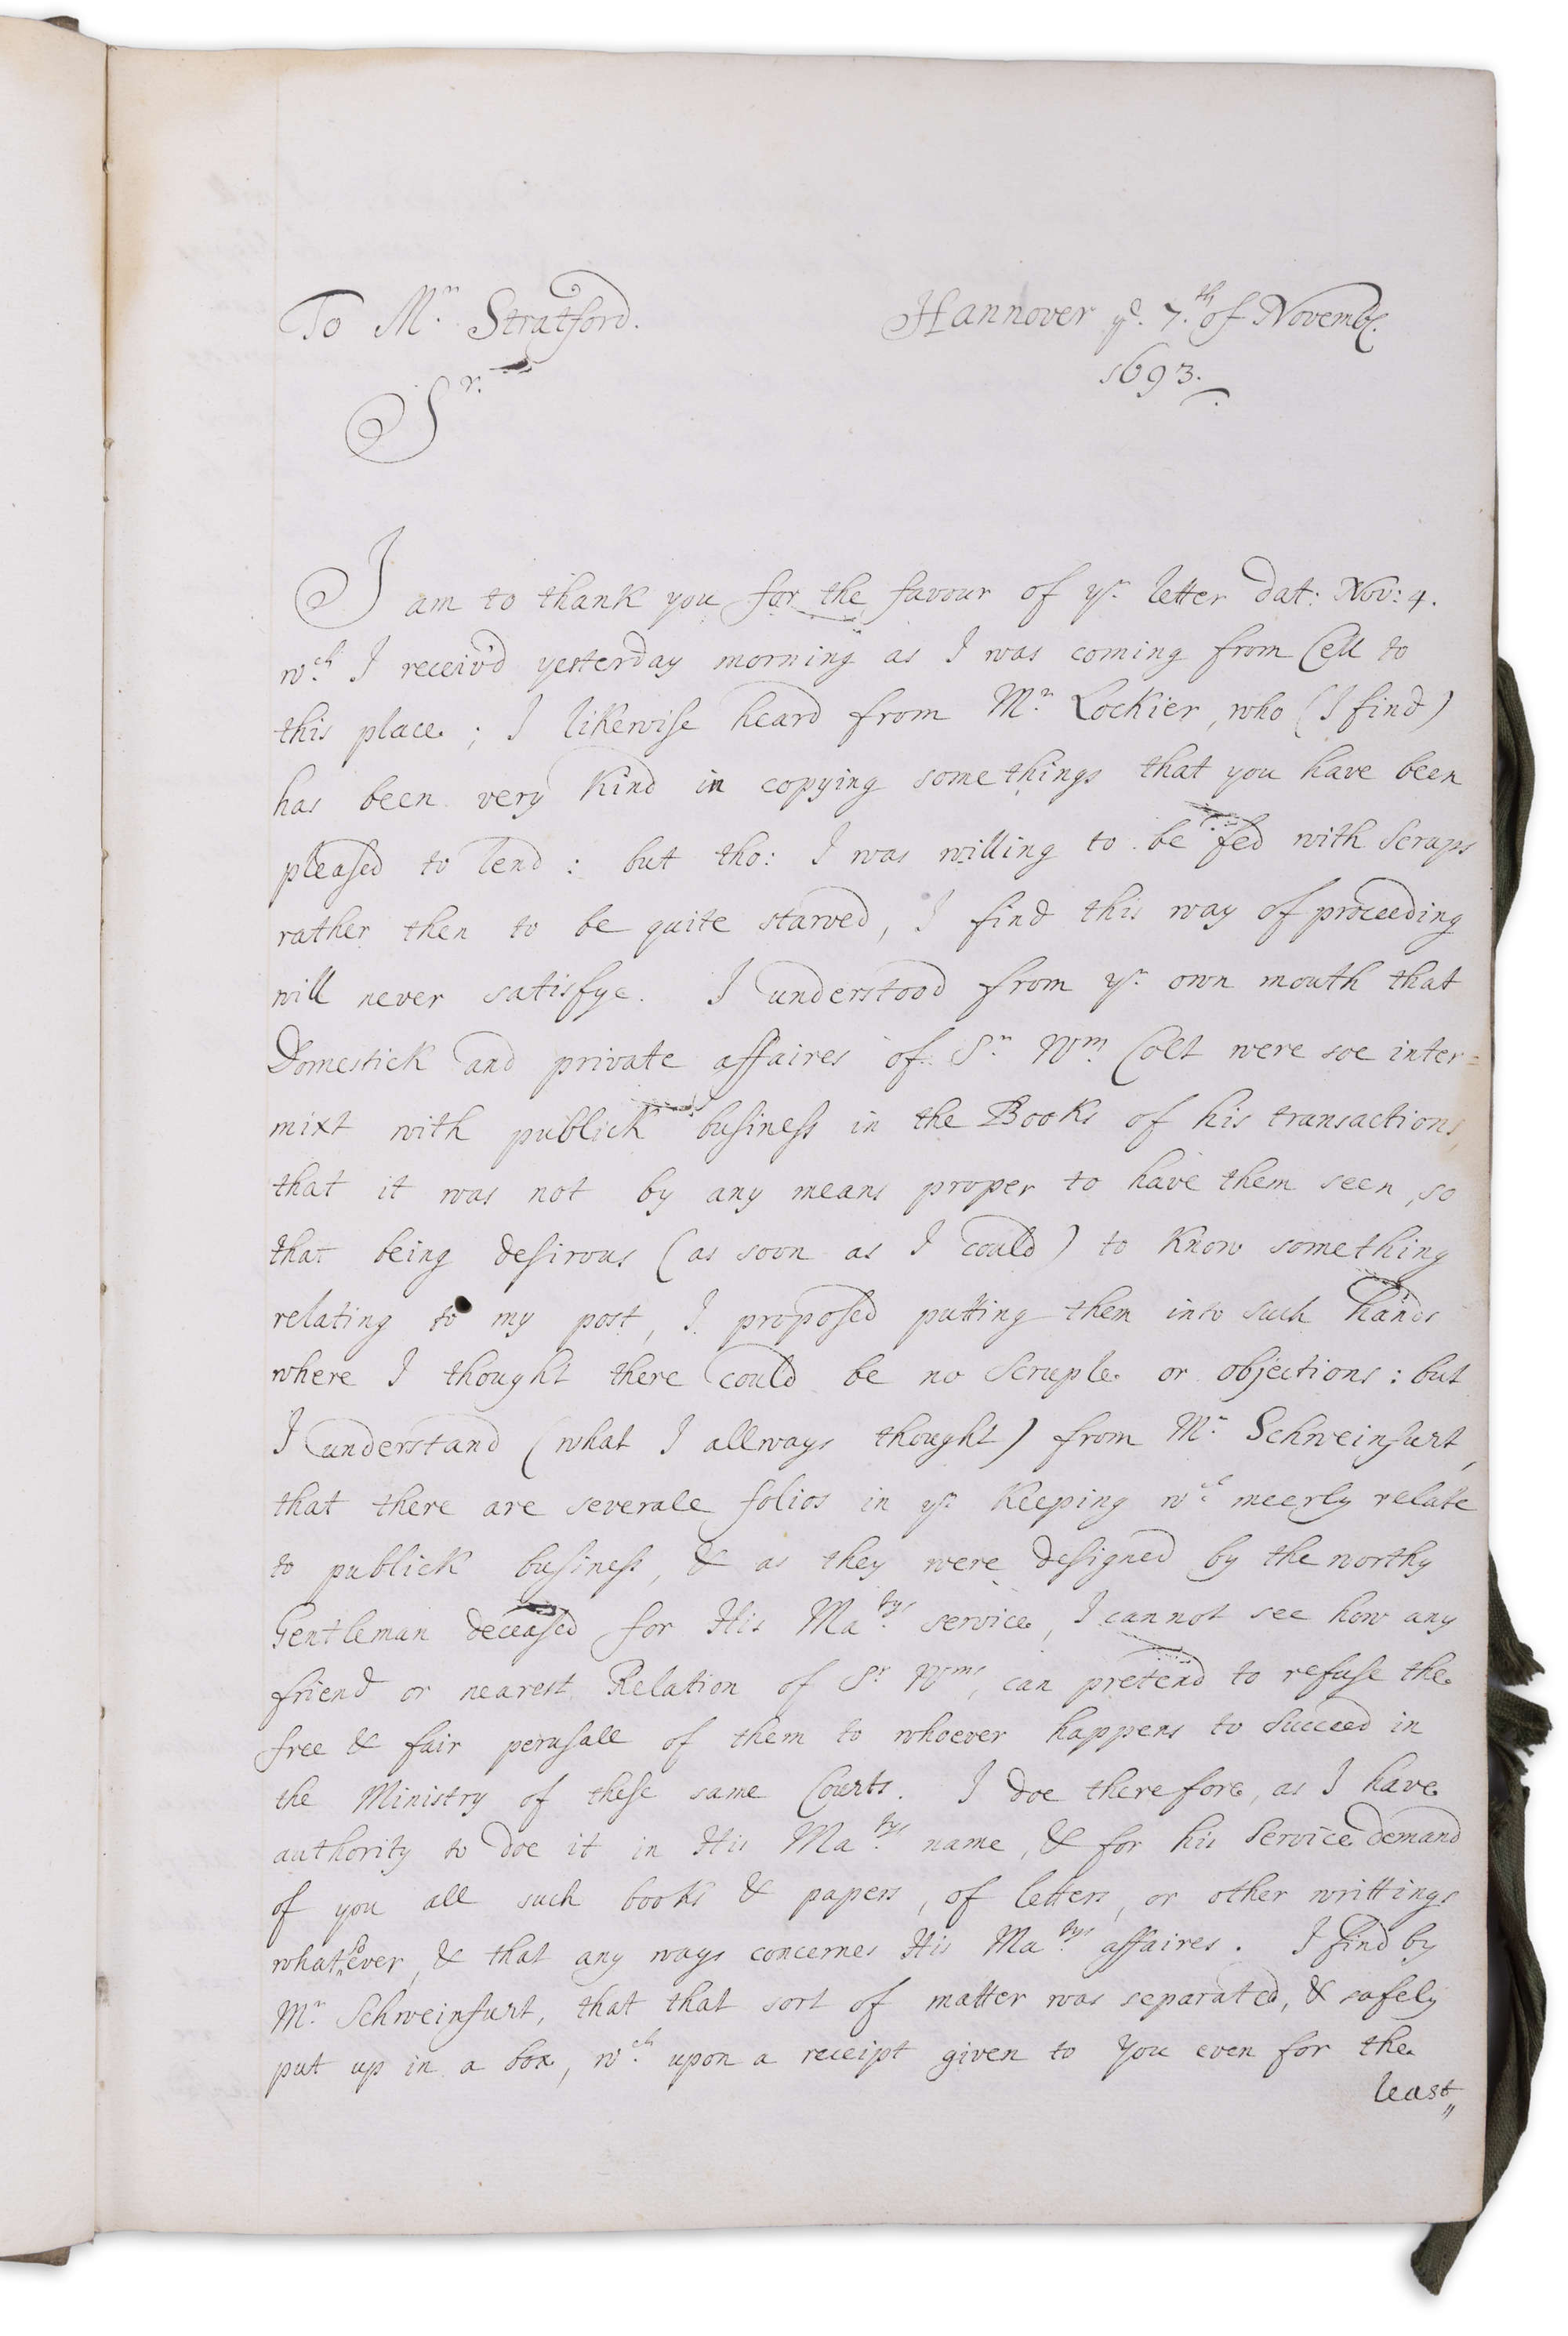 To Mr. Stratford.
Hannover ye. 7.th of Novembr.
1693.
Sr.
I am to thank you for the favour of yr. letter dat: Nov: 4.
wch. I receiv'd yesterday morning as I was coming from Cell to
this place; I likewise heard from Mr. Lockier, who (I find)
has been very kind in copying some things that you have been
pleased to lend: but tho: I was willing to be fed with scraps
rather then to be quite starved, I find this way of proceeding
will never satisfye. I understood from yr. own mouth that
Domestick and private affaires of Sr. Wm. Colt were soe inter=
mixt with publick business in the Books of his transactions,
that it was not by any means proper to have them seen, so
that being desirous (as soon as I could) to know something
relating to my post, I proposed putting them into such hands
where I thought there could be no scruple or objections: but
I understand (what I allways thought) from Mr. Schweinfurt,
that there are severale folios in yr. keeping wch. meerly relate
to publick business, & as they were designed by the worthy
Gentleman deceased for His Matys. service, I can not see how any
friend or nearest Relation of Sr. Wms, can pretend to refuse the
free & fair perusall of them to whoever happens to succeed in
the Ministry of these same Courts. I doe therefore, as I have
authority to doe it in His Matys. name, & for his service demand
of you all such books & papers, of letters, or other writtings
whatsoever, & that any ways concernes His Matys. affaires. I find by
Mr. Schweinfurt, that that sort of matter was separated, & safely
put up in a box, wch. upon a receipt given to you even for the
least,,